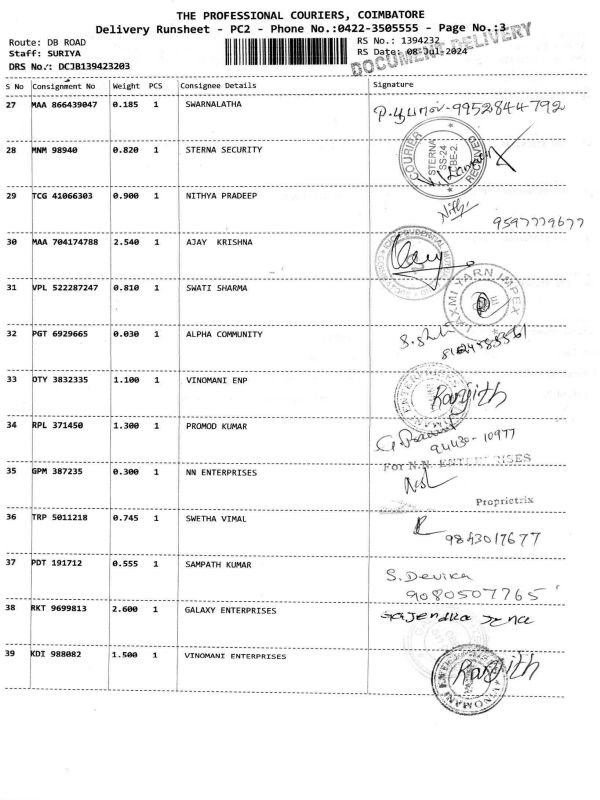 THE PROFESSIONAL COURIERS, COIMBATORE
Delivery Runsheet - PC2 - Phone No.:0422-3505555 - Page No.:3
Route: DB ROAD
RS No.: 1394232
Staff: SURIYA
RS Date: 08-Jul-2024
DOCUMENT DELIVERY
DRS No.: DCJB139423203
S No Consignment No Weight PCS Consignee Details Signature
27 MAA 866439047 0.185 1 SWARNALATHA 9952844792
28 MNM 98940 0.820 1 STERNA SECURITY
COURIER RECEIVED
STERNA
SS-24
29 TCG 41066303 0.900 1 NITHYA PRADEEP
9597779677
30 MAA 704174788 2.540 1 AJAY KRISHNA
31 VPL 522287247 0.810 1 SWATI SHARMA
LAXMI YARN IMPEX
32 PGT 6929665 0.030 1 ALPHA COMMUNITY
33 OTY 3832335 1.100 1 VINOMANI ENP
Ranjith
34 RPL 371450 1.300 1 PROMOD KUMAR
94430-10977
For N.N. ENTERPRISES
35 GPM 387235 0.300 1 NN ENTERPRISES
Proprietrix
36 TRP 5011218 0.745 1 SWETHA VIMAL
9843017677
37 PDT 191712 0.555 1 SAMPATH KUMAR
S. Devika
9080507765
38 RKT 9699813 2.600 1 GALAXY ENTERPRISES
39 KDI 988082 1.500 1 VINOMANI ENTERPRISES
Ranjith